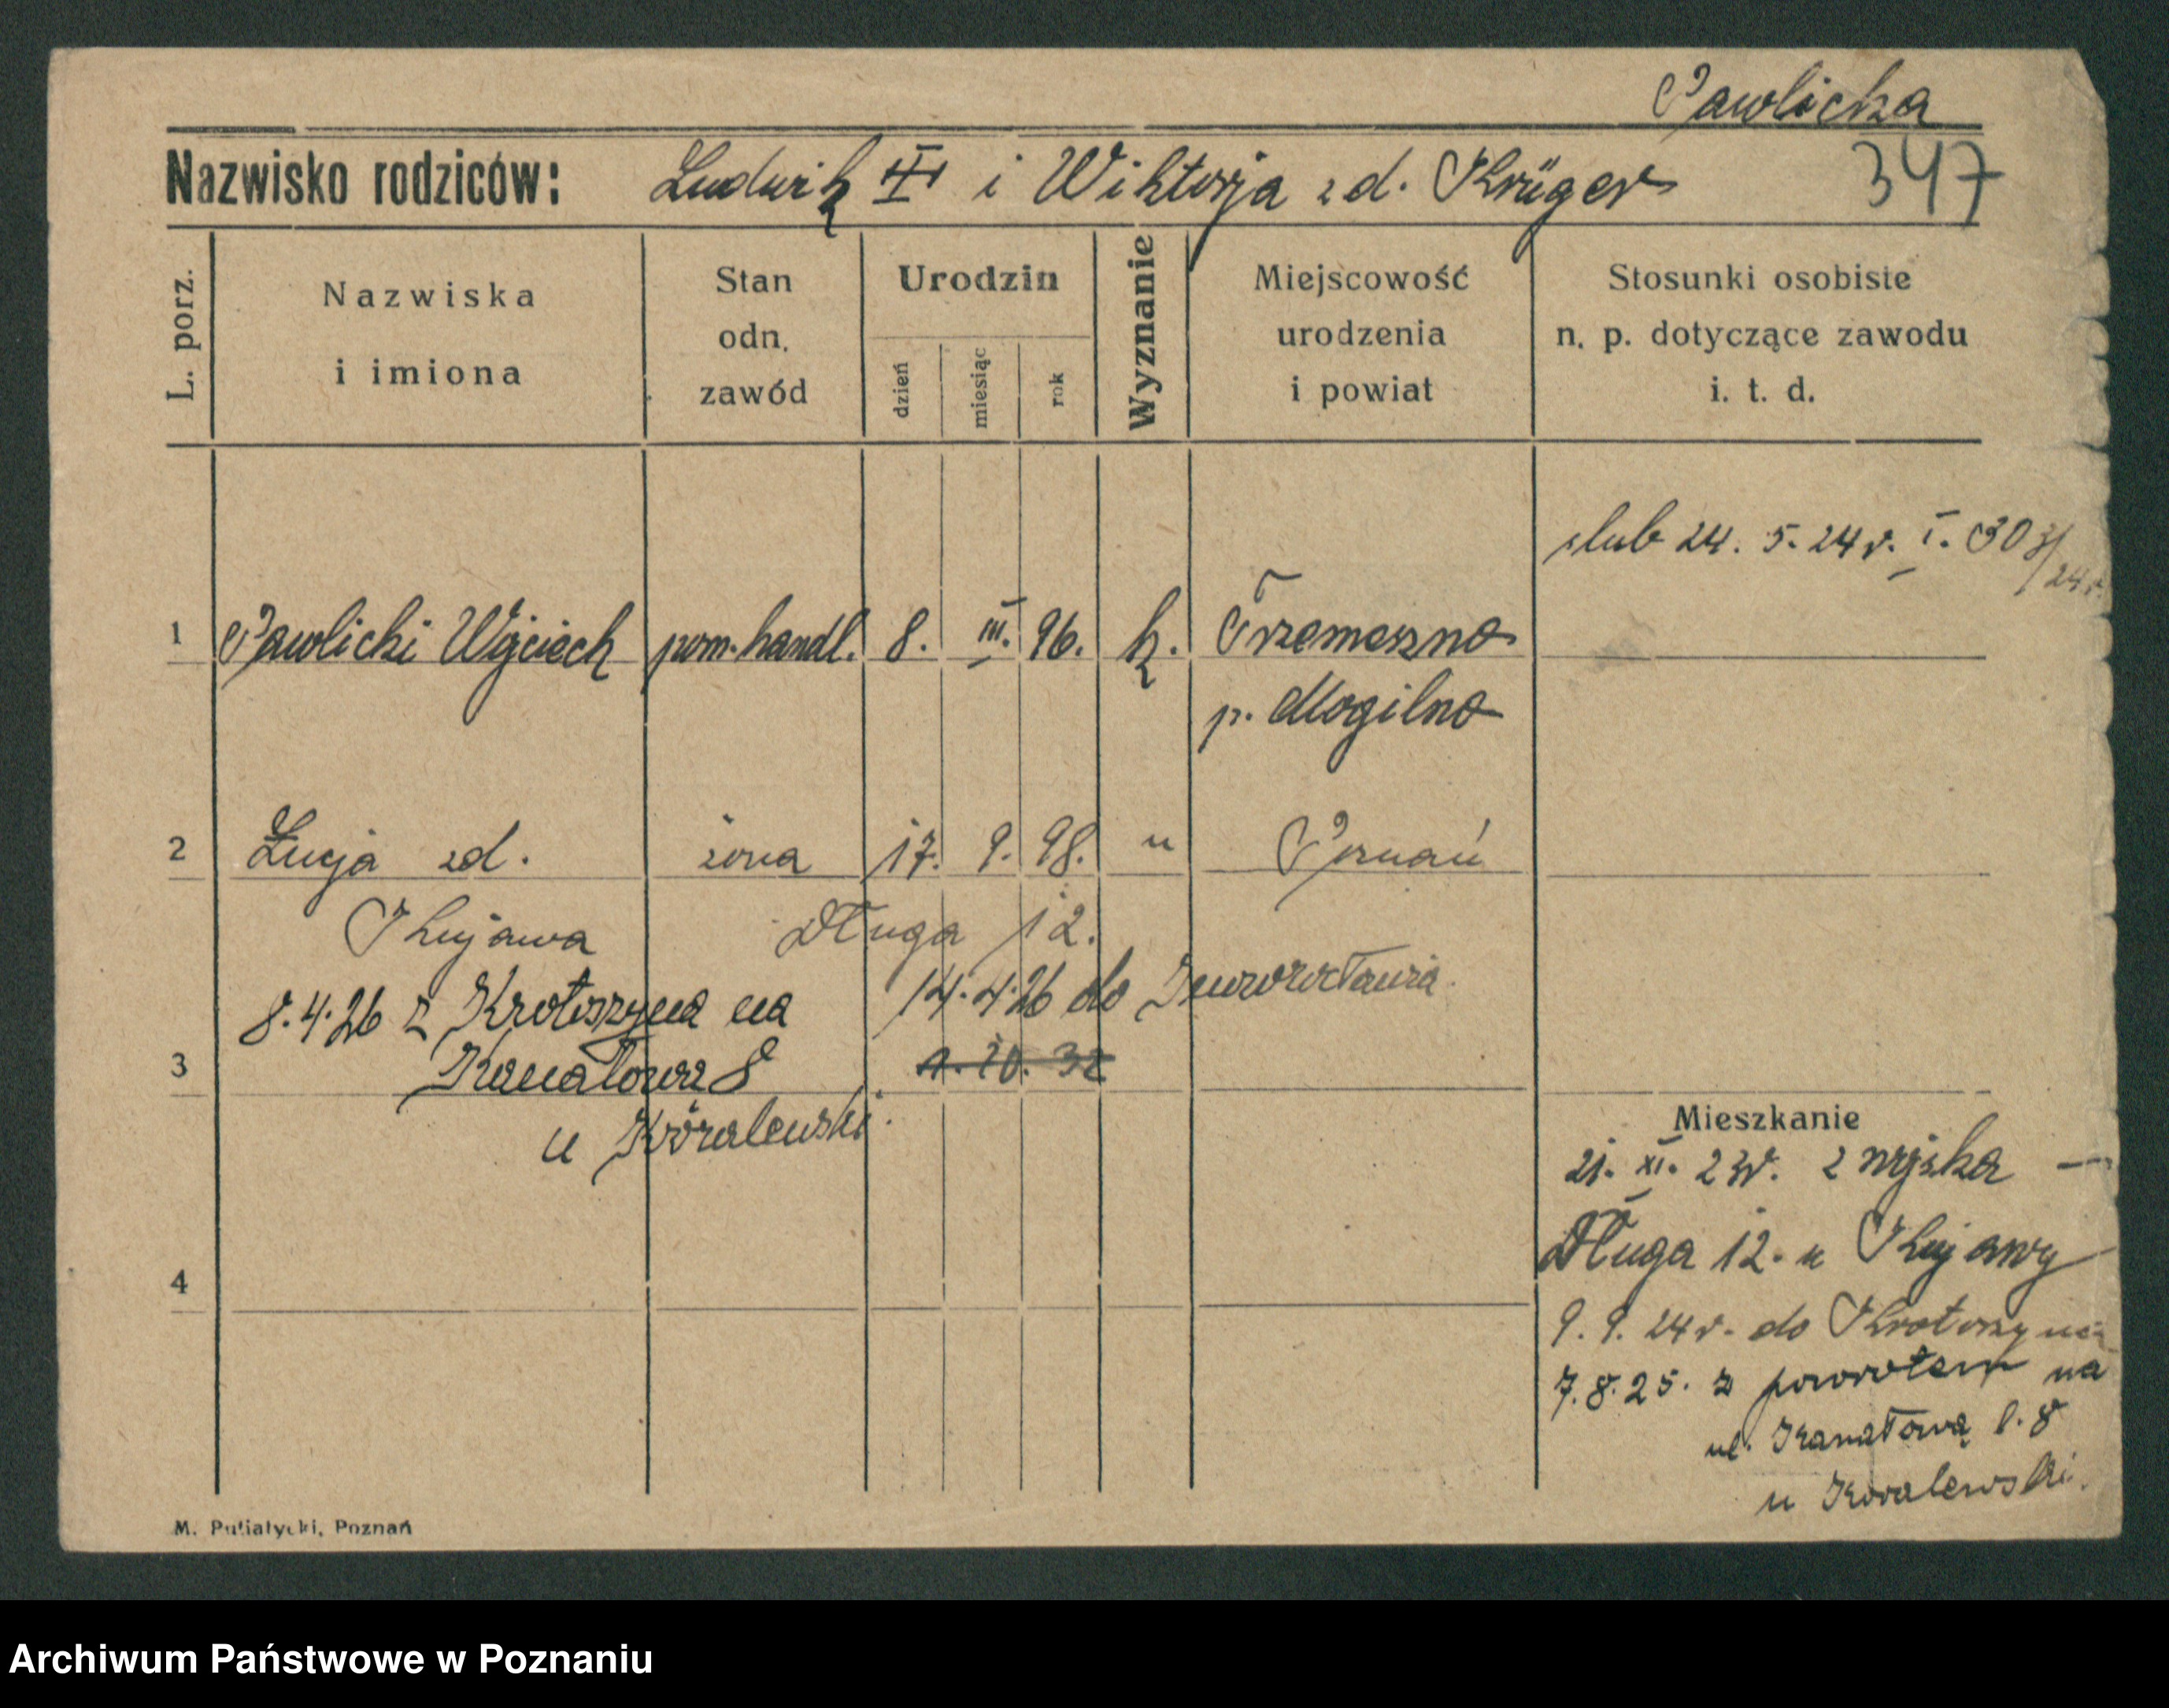 Pawlicka
Nazwisko rodziców: Ludwik i Wiktorja zd. Krüger 347
L. porz.
Nazwiska i imiona
Stan odn. zawód
Urodzin
dzień miesiąc rok
Wyznanie
Miejscowość urodzenia i powiat
Stosunki osobiste n. p. dotyczące zawodu i. t. d.
ślub 24. 5. 24 r. I. 303/24r.
1 Pawlicki Wojciech pom. handl. 8. III. 96. k. Trzemeszno
p. Mogilno
2 Łucja zd. żona 17. 9. 98. " Poznań
Kujawa Długa 12.
8.4.26 z Krotoszyna na 14.4.26 do Inowrocławia.
3 Kanałowa 8 1. 10. 32
u Kowalewski.
Mieszkanie
21. XI. 23r. z wojska —
Długa 12. u Kujawy
4
9. 9. 24 r. do Krotoszyna
7.8.25. z powrotem na
ul. Kanałową l. 8
u Kowalewski.
M. Putiatycki, Poznań
Archiwum Państwowe w Poznaniu